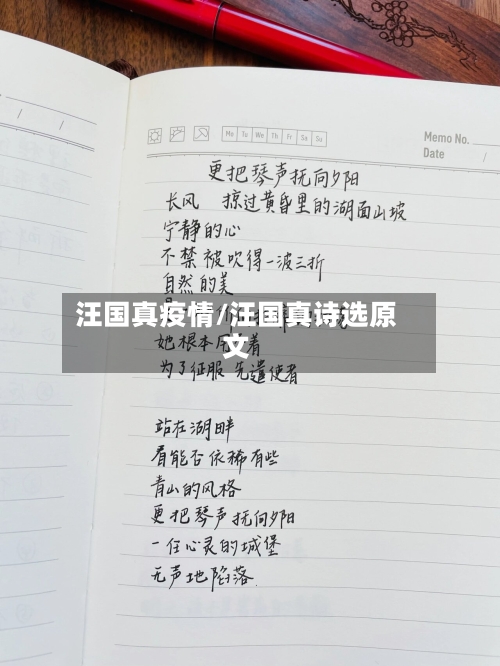 Mo Tu We Th Fr Sa Su
Memo No.
Date / /
更把琴声抚向夕阳
长风 掠过黄昏里的湖面山坡
宁静的心
不禁被吹得一波三折
自然的美
汪国真疫情/汪国真诗选原
文
她根本用不着
为了征服 先遣使者
站在湖畔
看能否依稀有些
青山的风格
更把琴声抚向夕阳
一任心灵的城堡
无声地陷落